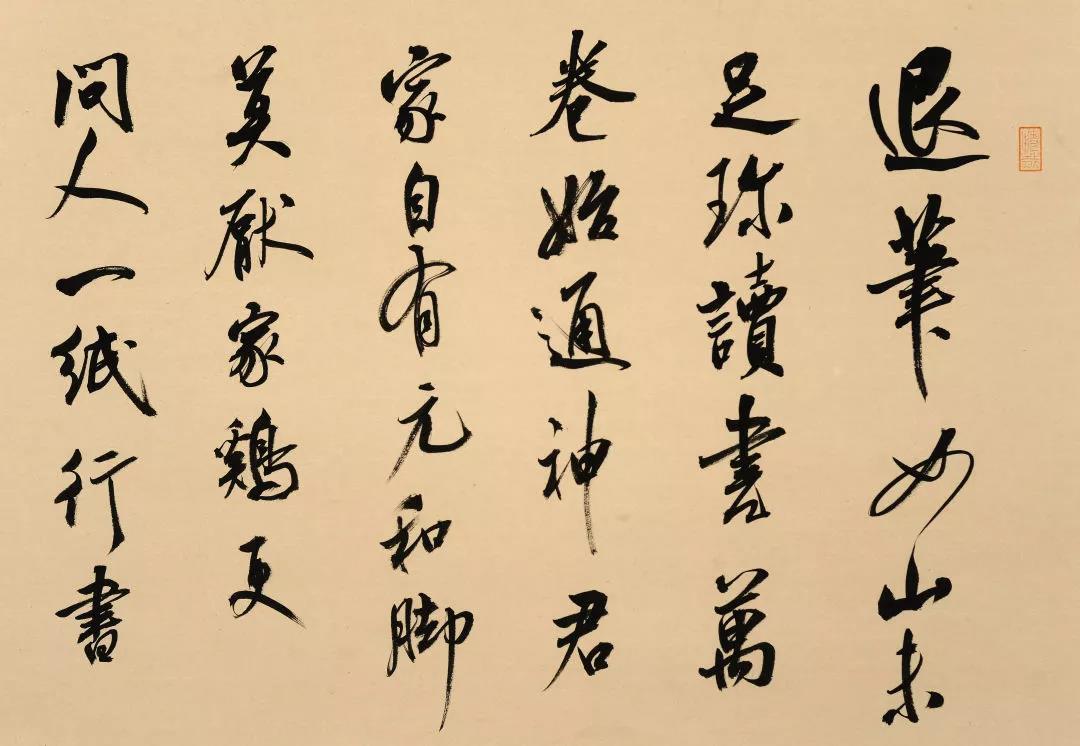 退筆如山未
足珎讀書萬
卷始通神君
家自有元和脚
莫厭家鷄更
問人一紙行書